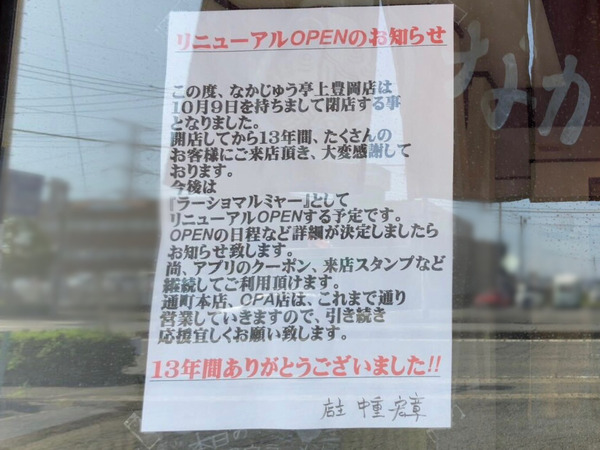 リニューアルOPENのお知らせ
この度、なかじゅう亭上豊岡店は
10月9日を持ちまして閉店する事
となりました。
開店してから13年間、たくさんの
お客様にご来店頂き、大変感謝して
おります。
今後は
『ラーショマルミャー』として
リニューアルOPENする予定です。
OPENの日程など詳細が決定しましたら
お知らせ致します。
尚、アプリのクーポン、来店スタンプなど
継続してご利用頂けます。
通町本店、CPA店は、これまで通り
営業していきますので、引き続き
応援宜しくお願い致します。
13年間ありがとうございました!!
店主 中重 宏章
なか
本日の